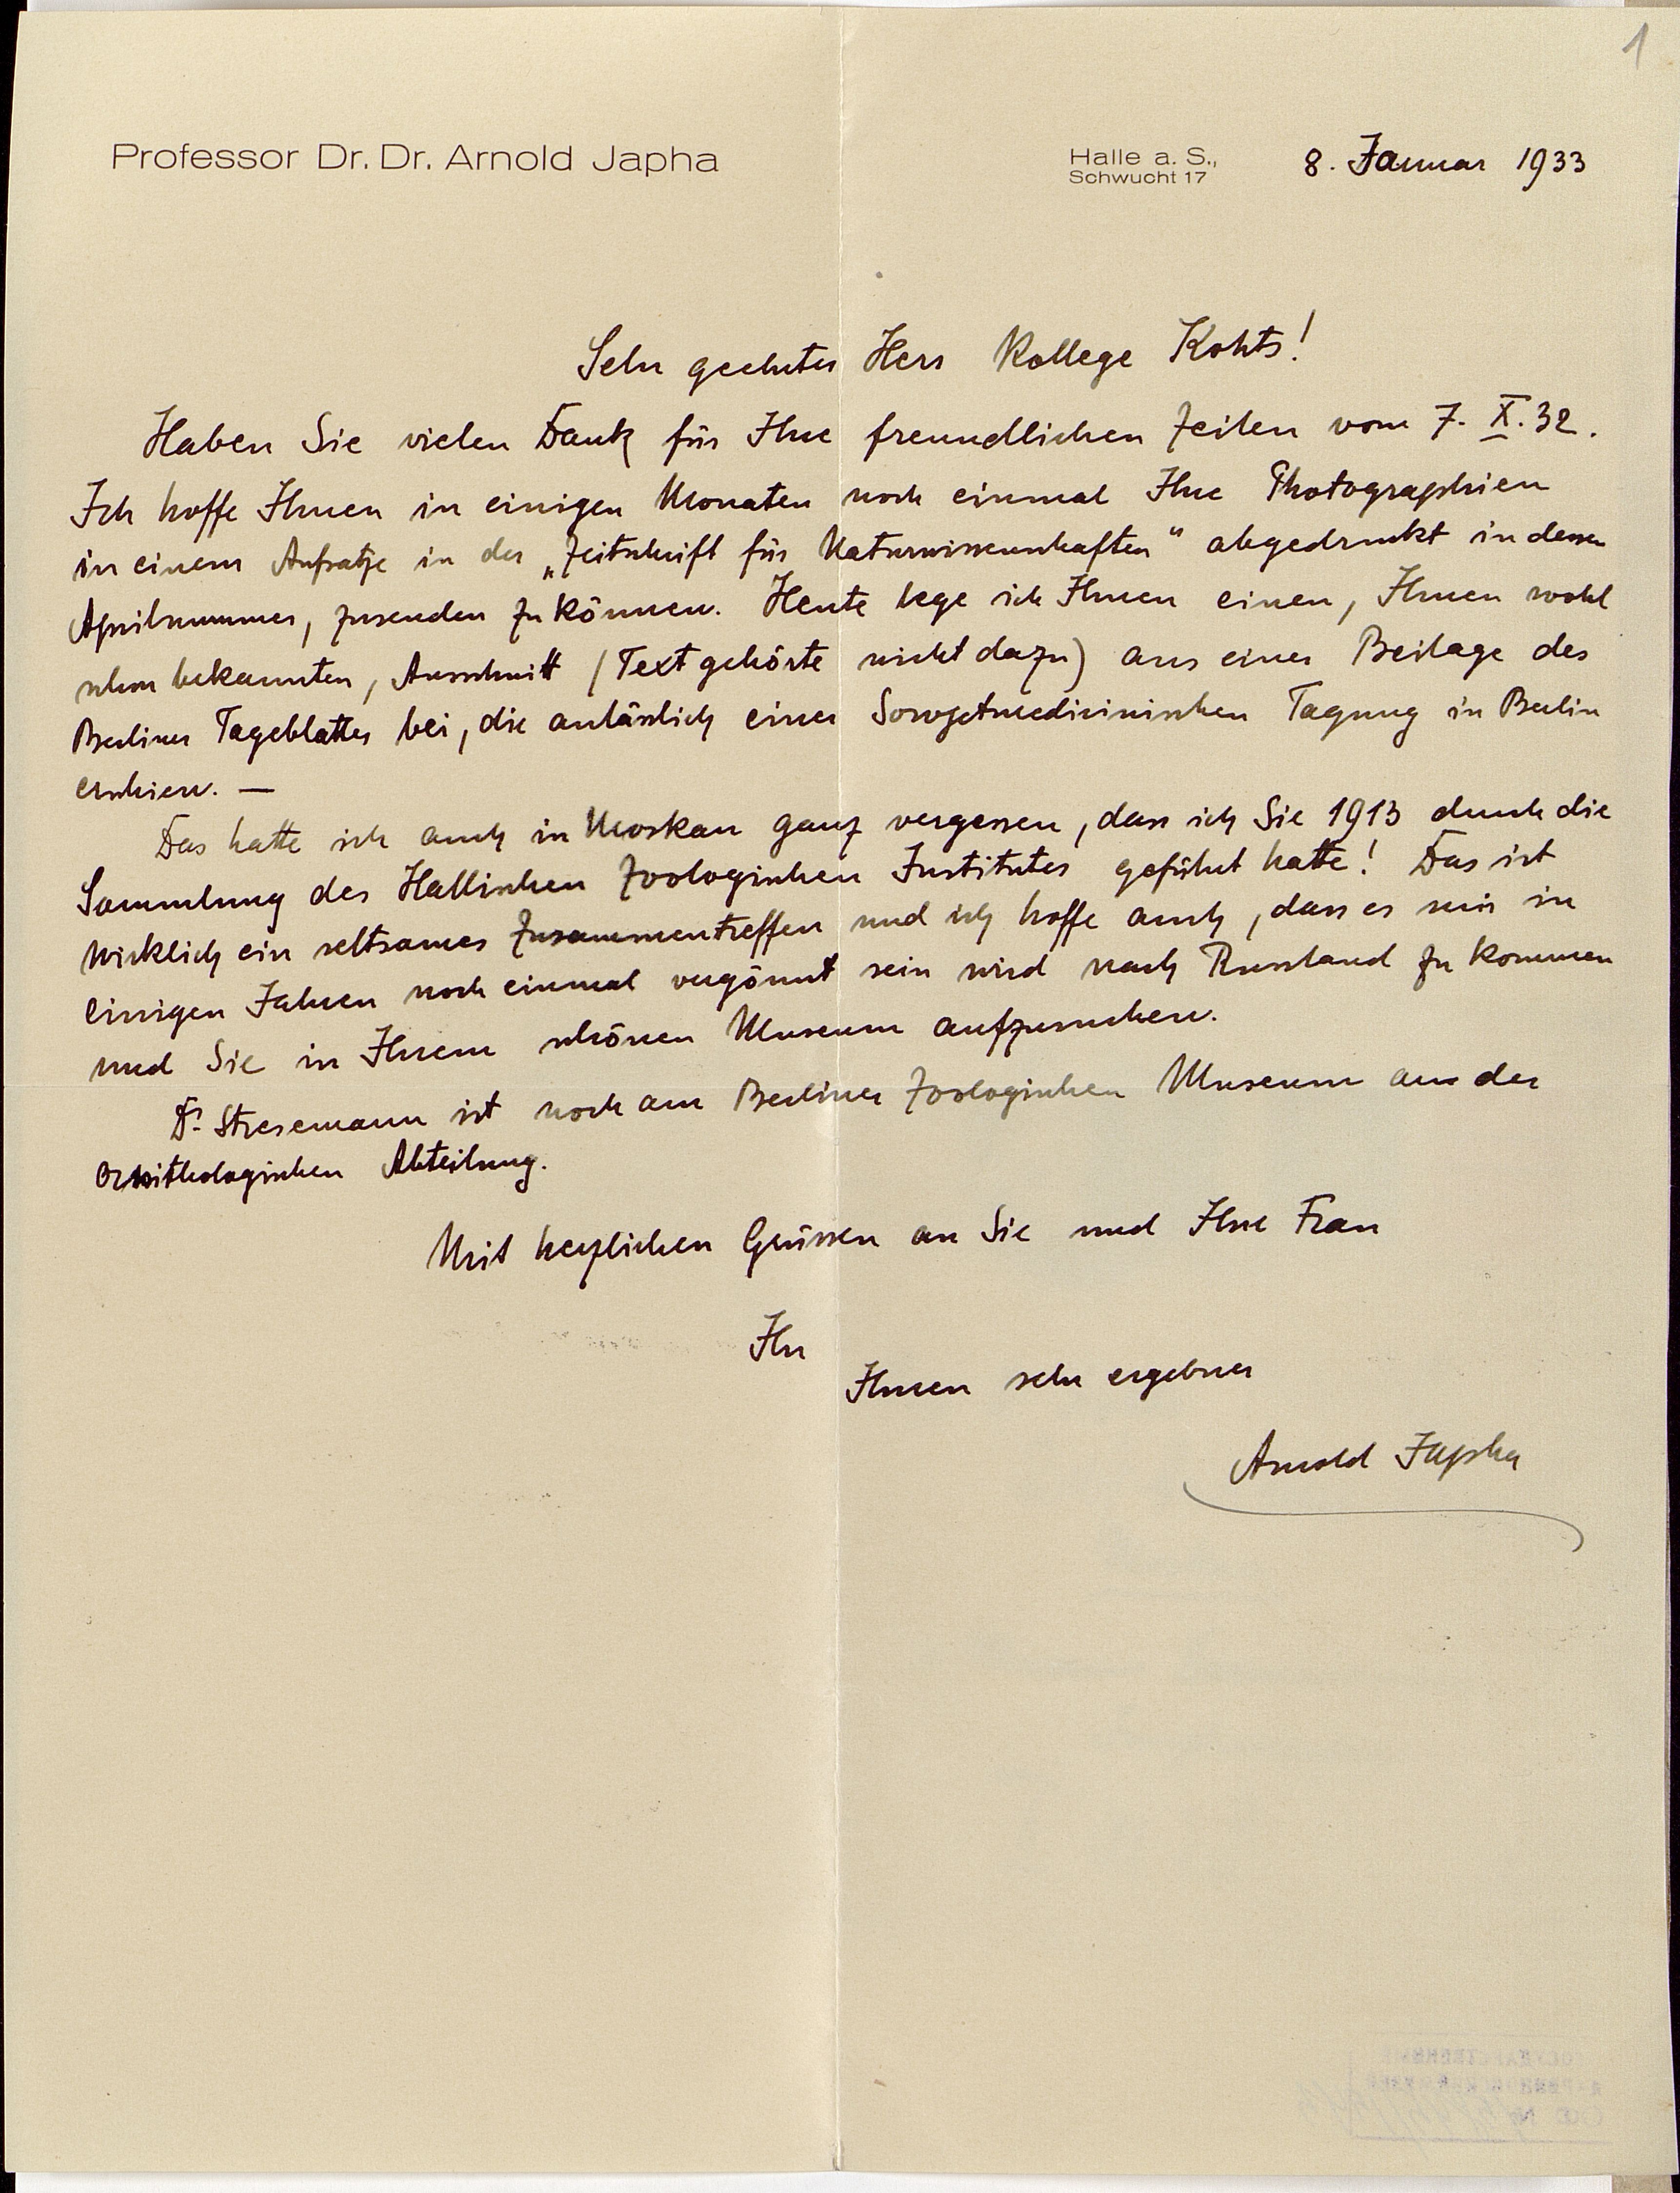 1
Professor Dr. Dr. Arnold Japha
Halle a. S.,
Schwucht 17
8. Januar 1933
Sehr geehrter Herr Kollege Kohts!
Haben Sie vielen Dank für Ihre freundlichen Zeilen vom 7. X. 32.
Ich hoffe Ihnen in einigen Monaten noch einmal Ihre Photographien
in einem Aufsatze in der „Zeitschrift für Naturwissenschaften“ abgedruckt in dessen
Aprilnummer, zusenden zu können. Heute lege ich Ihnen einen, Ihnen wohl
schon bekannten, Ausschnitt (Text gehörte nicht dazu) aus einer Beilage des
Berliner Tageblattes bei, die anlässlich einer Sowjetmedicinischen Tagung in Berlin
erschien. —
Das hatte ich auch in Moskau ganz vergessen, dass ich Sie 1913 durch die
Sammlung des Hallischen Zoologischen Institutes geführt hatte! Das ist
wirklich ein seltsames Zusammentreffen und ich hoffe auch, dass es mir in
einigen Jahren noch einmal vergönnt sein wird nach Russland zu kommen
und Sie in Ihrem schönen Museum aufzusuchen.
Dr Stresemann ist noch am Berliner Zoologischen Museum an der
Ornithologischen Abteilung.
Mit herzlichen Grüssen an Sie und Ihre Frau
Ihr
Ihnen sehr ergebner
Arnold Japha